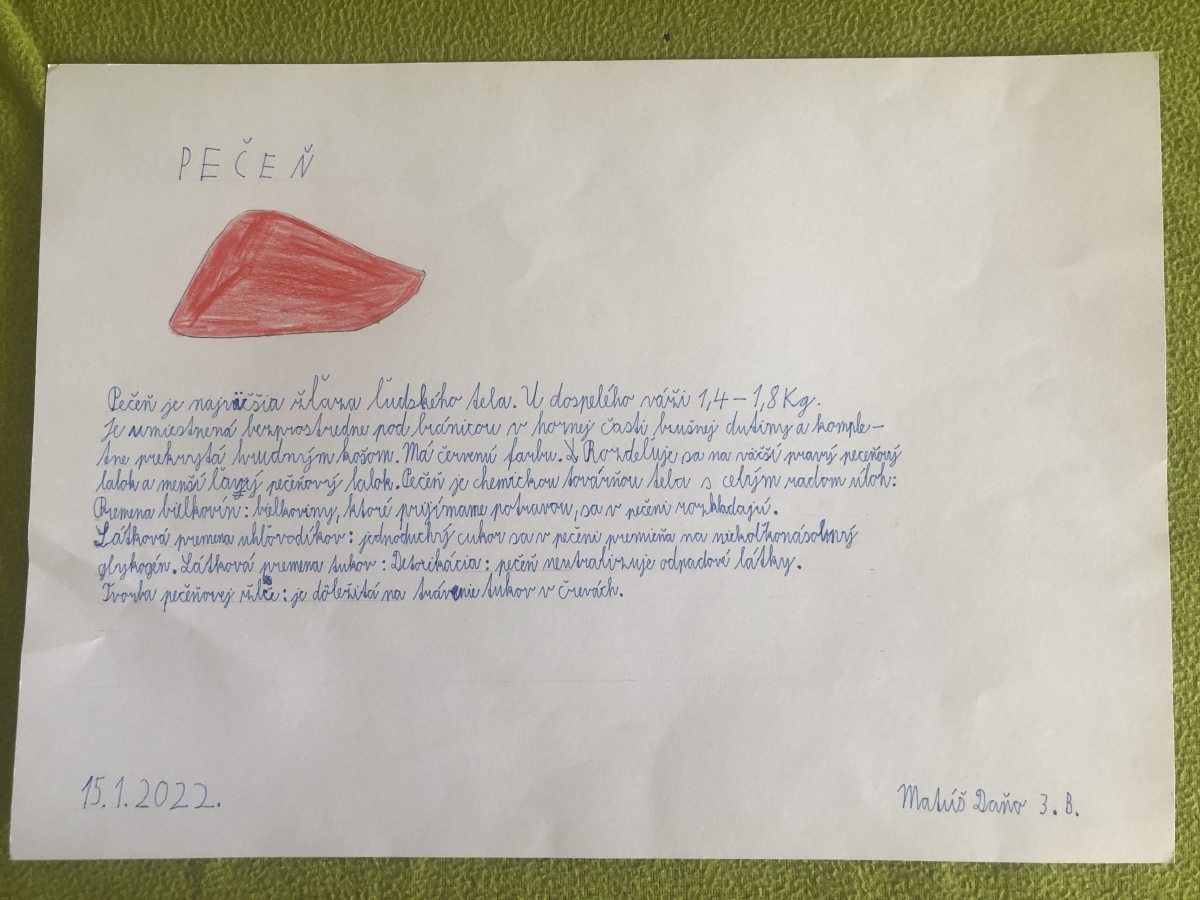 PEČEŇ
Pečeň je najväčšia žľaza ľudského tela. U dospelého váži 1,4 – 1,8 Kg.
Je umiestnená bezprostredne pod bránicou v hornej časti brušnej dutiny a komple–
tne prekrytá hrudným košom. Má červenú farbu. Rozdeľuje sa na väčší pravý pečeňový
lalok a menší ľavý pečeňový lalok. Pečeň je chemickou továrňou tela s celým radom úloh:
Premena bielkovín: bielkoviny, ktoré prijímame potravou, sa v pečeni rozkladajú.
Látková premena uhľovodíkov: jednoduchý cukor sa v pečeni premieňa na niekoľkonásobný
glykogén. Látková premena tukov: Detoxikácia: pečeň neutralizuje odpadové látky.
Tvorba pečeňovej žlče: je dôležitá na trávenie tukov v črevách.
15.1.2022.
Matúš Daňo 3. B.